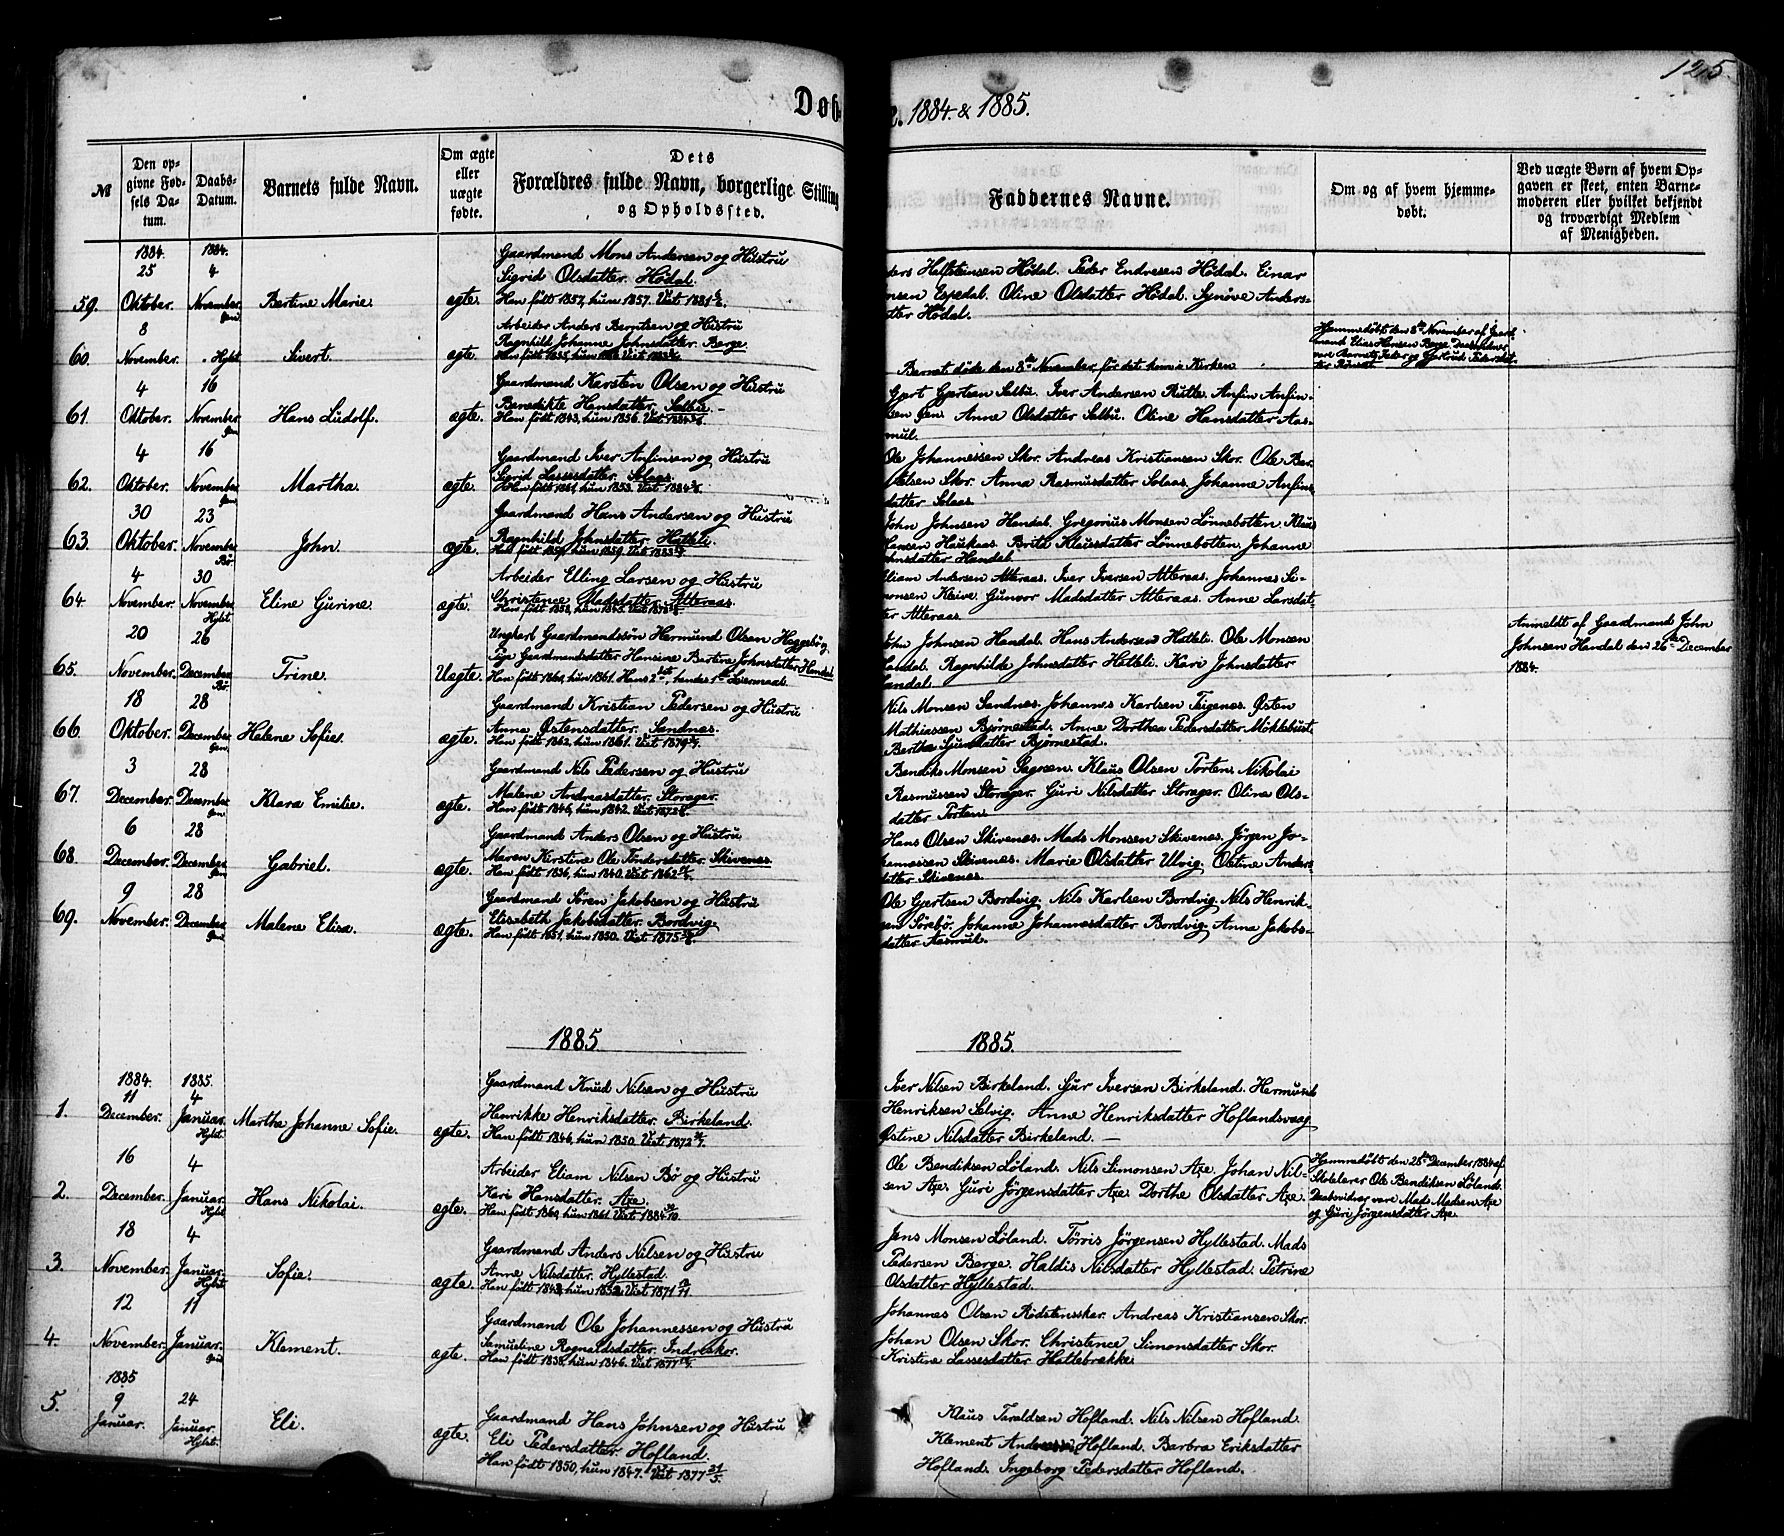 125
Døb
1884 & 1885.
№
Den op-
givne Fød-
sels Da-
tum.
Daabs-
Datum.
Barnets fulde Navn.
Om ægte
eller
uægte
fødte.
Dets
Forældres fulde Navn, borgerlige Stilling
og Opholdssted.
Faddernes Navne.
Om og af hvem hjemme-
døbt.
Ved uægte Børn af hvem Op-
gaven er skeet, enten Barne-
moderen eller hvilket bekjendt
og troværdigt Medlem
af Menigheden.
1884. 1884.
25 4
59. Oktober. November. Bertine Marie. ægte.
Gaardmand Mons Andersen og Hustru
Sigrid Olsdatter. Hödal.
Han født 1857, hun 1857. Viet 1881
Helstensen Hödal. Peder Endresen Hödal. Einar
Espedal. Oline Olsdatter Hödal. Synøve Anders-
datter Hödal.
8
60 November. Sivert. ægte.
Arbeider Anders Berntsen og Hustru
Ragnhild Johanne Johnsdatter. Berge.
Barnet døde den 8de November før det kom i Kirken
Hjemmedøbt den 8de November af Gaard-
mand Elias Hansen Berge
4 16
61. Oktober. November. Hans Ludolf. ægte.
Gaardmand Karsten Olsen og Hustru
Benedikte Hansdatter. Selbu.
Han født 1843, hun 1856. Viet 1884
Gjert Gjertsen Selbu. Iver Andersen Rutle. Anfin Anfin-
sen Gjen. Anne Olsdatter Selbu. Oline Hansdatter Aas-
mul.
4 16
62. Oktober. November. Martha. ægte.
Gaardmand Iver Anfinsen og Hustru
Sigrid Lassesdatter. Solaas.
Ole Johannessen Skor. Andreas Kristiansen Skor. Ole
Skor. Anna Rasmusdatter Solaas. Johanne Anfins-
datter Solaas.
30 23
63. Oktober. November John. ægte.
Gaardmand Hans Andersen og Hustru
Ragnhild Johnsdatter. Hatleli.
John Johnsen Handal. Gregorius Monsen Lönnebotten. Klaus
Hansen Haukaas. Brita Klausdatter Lönnebotten. Johanne
Johnsdatter Handal.
4 30
64 November. November. Eline Gjurine. ægte.
Arbeider Elling Larsen og Hustru
Christence Madsdatter. Atteraas.
Eliam Andersen Atteraas. Iver Iversen Atteraas. Johannes Si-
monsen Kleive. Gunvor Madsdatter Atteraas. Anne Larsdat-
ter Atteraas.
20 26
65. November. December. Trine. Uægte.
Ungkarl Gaardmandssön Hermund Olsen Heggebö og
Pige Gaardmandsdatter Hansine Bertine Johnsdatter Handal
Han født 1860, hun 1861. Hans 2det, hendes 1ste Leiermaal.
John Johnsen Handal. Hans Andersen Hatleli. Ole Monsen
Handal. Ragnhilde Johnsdatter Hatleli. Kari Johnsdatter
Handal.
Anmeldt af Gaardmand John
Johnsen Handal den 26de December
1884.
18 28
66. Oktober. December. Helene Sofie. ægte.
Gaardmand Kristian Pedersen og Hustru
Anne Østensdatter. Sandnes.
Han født 1862, hun 1861. Viet 1879
Nils Monsen Sandnes. Johannes Karlsen Teigenes. Østen
Mathiassen Björnestad. Anne Dorthea Pedersdatter Möklebust
Berthe Gjursdatter Björnestad.
3 28
67. December. December. Klara Emilie. ægte.
Gaardmand Nils Pedersen og Hustru
Malene Andreasdatter. Storager.
Han født 1846, hun 1842. Viet 1872
Bendiks Monsen Klaus Olsen Torten. Nikolai
Rasmussen Storager. Guri Nilsdatter Storager. Olina Ols-
datter Torten.
6 28
68. December. December. Gabriel. ægte.
Gaardmand Anders Olsen og Hustru
Maren Kirstine Ole Andersdatter. Skivenes.
Han født 1836, hun 1840. Viet 1862
Hans Olsen Skivenes. Mads Monsen Skivenes. Jörgen Jo-
hannessen Skivenes. Marie Olsdatter Ulvig. Olstine Anders-
datter Skivenes.
9 28
69. November. December. Malene Elisa. ægte.
Gaardmand Sören Jakobsen og Hustru
Elisabeth Jakobsdatter. Bordvig.
Han født 1851, hun 1850. Viet 1875
Ole Gjertsen Bordvig. Nils Karlsen Bordvig. Nils Henrik-
sen Sörebö. Johanne Johannesdatter Bordvig. Anna Jakobs-
datter Aasmul.
1885
1885.
1884. 1885.
11 4
1. December. Januar. Hylst. Martha Johanne Sofie. ægte.
Gaardmand Knud Nilsen og Hustru
Henrikke Henriksdatter. Birkeland.
Han født 1846, hun 1850. Viet 1872
Iver Nilsen Birkeland. Gjur Iversen Birkeland. Hermund
Henriksen Selvig. Anne Henriksdatter Hoflandsvaag
Østine Nilsdatter Birkeland.
16 4
2. December. Januar. Hylst Hans Nikolai. ægte.
Arbeider Eliam Nilsen Bö og Hustru
Kari Hansdatter. Axe.
Han født 1860, hun 1861. Viet 1884
Ole Bendiksen Löland. Nils Simonsen Axe. Johan Nil-
sen Axe. Guri Jörgensdatter Axe. Dorthe Olsdatter Axe.
Hjemmedøbt den 28de December 1884 af
Skolelærer Ole Bendiksen Löland.
Daabsvidner vare Mads Madsen Axe
og Guri Jörgensdatter Axe.
18 4
3. November. Januar. Hylst Sofie. ægte.
Gaardmand Anders Nilsen og Hustru
Anne Nilsdatter. Hyllestad.
Han født 1843, hun 1852. Viet 1871
Jens Monsen Löland. Törris Jörgensen Hyllestad. Mads
Pedersen Berge. Haldis Nilsdatter Hyllestad. Petrine
Olsdatter Hyllestad.
12 11
4. November. Januar. Klement. ægte.
Gaardmand Ole Johannessen og Hustru
Samueline Rognaldsdatter. Indreskor.
Han født 1838, hun 1846. Viet 1877
Johannes Olsen Risdstensskor. Andreas Kristiansen Skor.
Johan Olsen Skor. Christence Simonsdatter Skor.
Kristine Lassesdatter Hattebrække.
1885
9 24
5. Januar. Januar. Hylst. Eli. ægte.
Gaardmand Hans Johnsen og Hustru
Eli Pedersdatter. Hofland.
Han født 1850, hun 1847. Viet 1877 21/5
Klaus Taraldsen Hofland. Nils Nilsen Hofland.
Klement Andersen Hofland. Barbra Eriksdatter
Hofland. Ingeborg Pedersdatter Hofland.